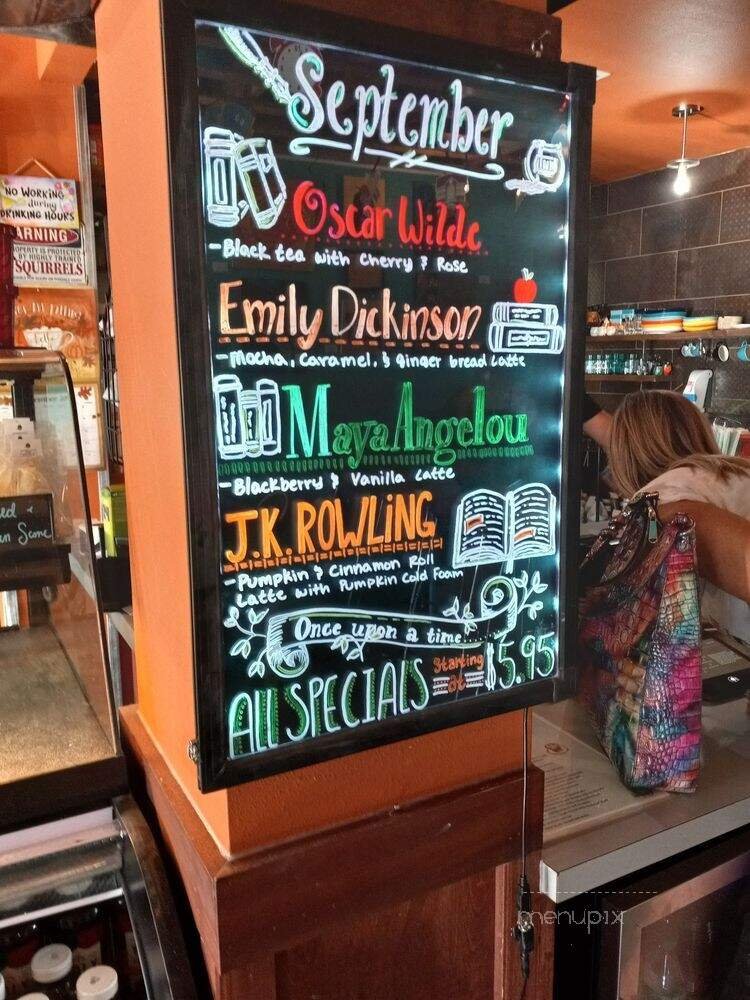 September
Oscar Wilde
-Black tea with Cherry & Rose
Emily Dickinson
-Mocha, Caramel, & ginger bread Latte
Maya Angelou
-Blackberry & Vanilla Latte
J.K. ROWLING
-Pumpkin & Cinnamon Roll
Latte with Pumpkin Cold Foam
Once upon a time...
All SPECIALS Starting at $5.95
NO WORKING
during
DRINKING HOURS
WARNING
PROPERTY IS PROTECTED
BY HIGHLY TRAINED
SQUIRRELS
menupix